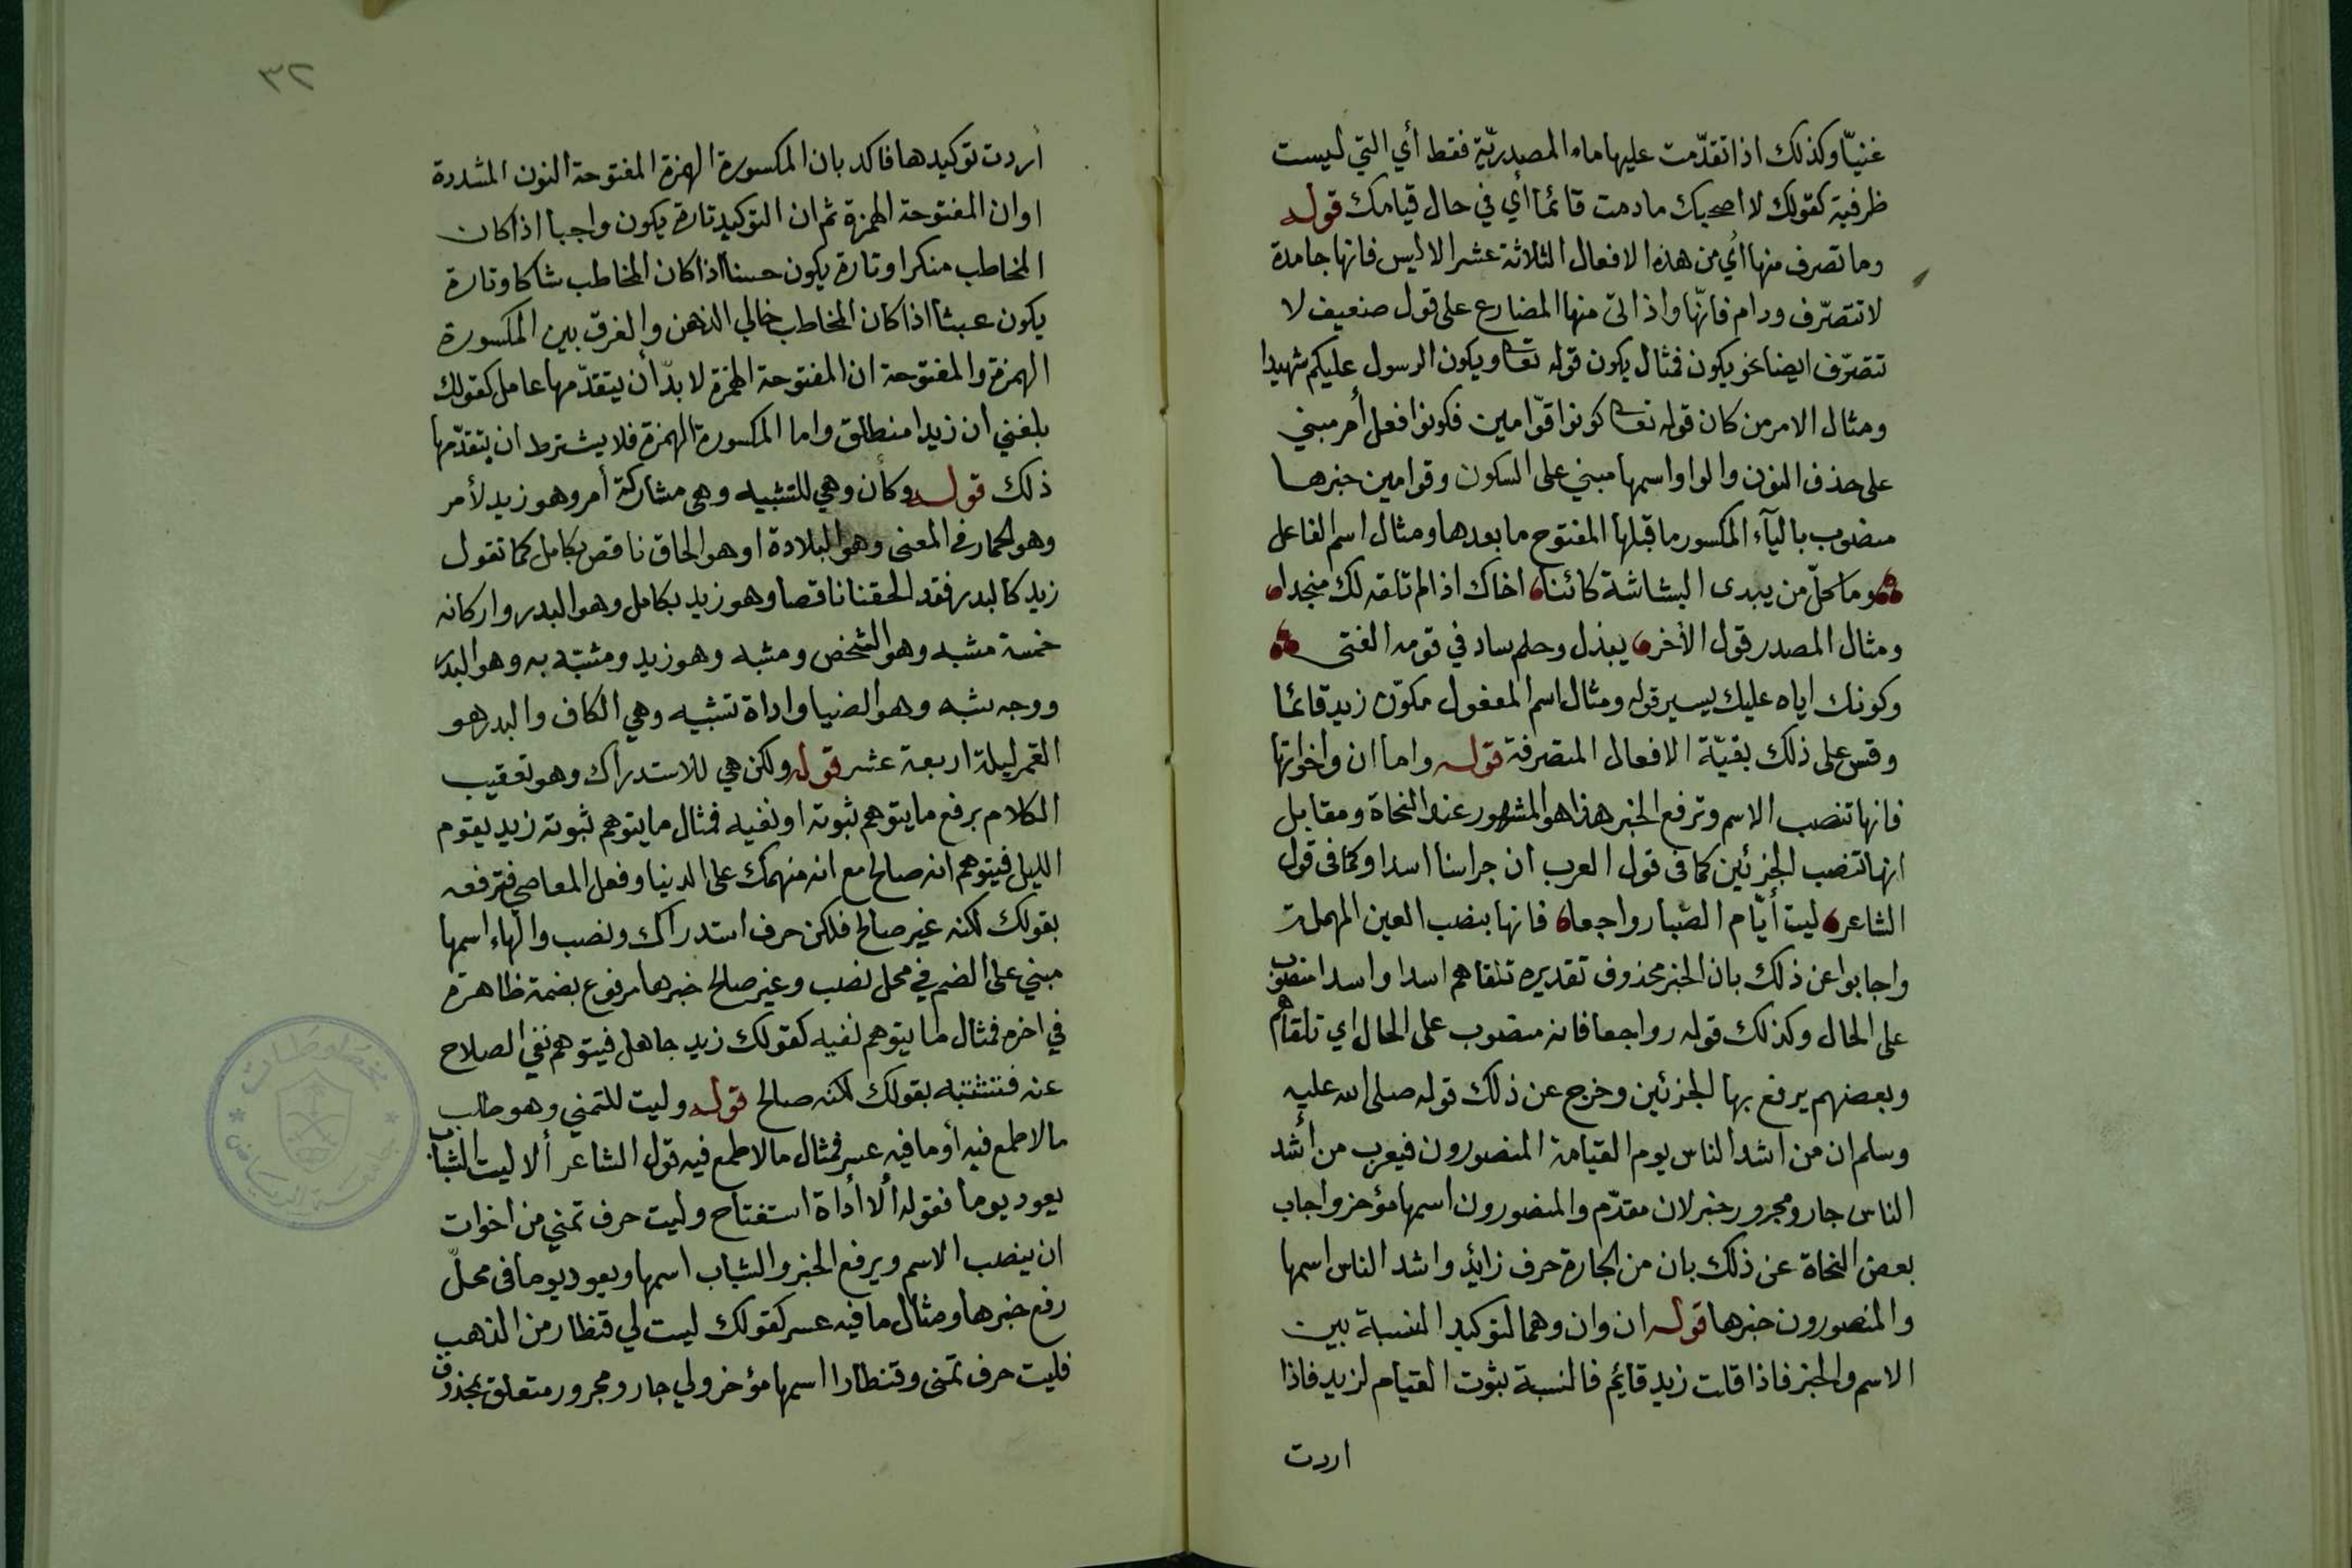 غنيّا وكذلك اذا تقدّمت عليها ماء المصدريّة فقط أي التي ليست
ظرفية كقولك لا اصحبك ما دمت قائما أي في حال قيامك قوله
وما تصرف منها أي من هذه الافعال الثلاثة عشر الا ليس فانها جامدة
لا تتصرّف ودام فانّها واذ اتى منها المضارع على قول ضعيف لا
تتصرّف ايضا نحو يكون فمثال يكون قوله تعا ويكون الرسول عليكم شهيدا
ومثال الامر من كان قوله تعا كونوا قوّامين فكونوا فعل أمر مبني
على حذف النون والواو اسمها مبني على السكون وقوامين خبرها
منصوب باليآء المكسور ما قبلها المفتوح ما بعدها ومثال اسم الفاعل
وما كلّ من يبدى البشاشة كائنا اخاك اذا لم تلقه لك منجدا
ومثال المصدر قول الأخر يبذل وحلم ساد في قومه الفتى
وكونك اياه عليك يسير قوله ومثال اسم المفعول مكوّن زيد قائما
وقس على ذلك بقيّة الافعال المتصرفة قوله واما ان واخواتها
فانها تنصب الاسم وترفع الخبر هذا هو المشهور عند النحاة ومقابل
انها تنصب الجزئين كما في قول العرب ان جراسنا اسدا وكما في قول
الشاعر ليت أيّام الصّبا رواجعا فانها بنصب العين المهملة
واجابوا عن ذلك بان الخبر محذوف تقديره تلقاهم اسدا واسدا منصوب
على الحال وكذلك قوله رواجعا فانه منصوب على الحال اي تلقاهم
وبعضهم يرفع بها الجزئين وخرج عن ذلك قوله صلى الله عليه
وسلم ان من اشد الناس يوم القيامة المنصورون فيعرب من أشد
الناس جار ومجرور خبر لان مقدّم والمنصورون اسمها مؤخر واجاب
بعض النحاة عن ذلك بان من الجارة حرف زائد واشد الناس اسمها
والمنصورون خبرها قوله ان وان وهما لتوكيد النسبة بين
الاسم والخبر فاذا قلت زيد قايم فالنسبة ثبوت القيام لزيد فاذا
اردت
٣٢
أردت توكيدها فاكد بان المكسورة الهمزة المفتوحة النون المشددة
اوان المفتوحة الهمزة ثم ان التوكيد تارة يكون واجبا اذا كان
المخاطب منكرا وتارة يكون حسنا اذا كان المخاطب شاكا وتارة
يكون عبثا اذا كان المخاطب خالي الذهن والفرق بين المكسورة
الهمزة والمفتوحة ان المفتوحة الهمزة لا بدّ أن يتقدّمها عامل كقولك
بلغني ان زيدا منطلق واما المكسورة الهمزة فلا يشترط ان يتقدّمها
ذلك قوله وكأن وهي للتشبيه وهي مشاركة أمر وهو زيد لأمر
وهو الحمار في المعنى وهو البلادة او هو الحاق ناقص بكامل كما تقول
زيد كالبدر فقد الحقنا ناقصا وهو زيد بكامل وهو البدر واركانه
خمسة مشبه وهو الشخص ومشبه وهو زيد ومشبّه به وهو البدر
ووجه شبه وهو الضيا واداة تشبيه وهي الكاف والبدر هو
القمر ليلة اربعة عشر قوله ولكن هي للاستدراك وهو تعقيب
الكلام برفع ما يتوهم ثبوته او نفيه فمثال ما يتوهم ثبوته زيد يقوم
الليل فيتوهم انه صالح مع انه منهمك على الدنيا وفعل المعاصي فترفعه
بقولك لكنه غير صالح فلكن حرف استدراك ونصب والهاء اسمها
مبني على الضم في محل نصب وغير صالح خبرها مرفوع بضمة ظاهرة
في اخره فمثال ما يتوهم نفيه كقولك زيد جاهل فيتوهم نفي الصلاح
عنه فتثبته بقولك لكنه صالح قوله وليت للتمني وهو طلب
مالا طمع فيه أو ما فيه عسر فمثال مالا طمع فيه قول الشاعر ألا ليت الشباب
يعود يوما فقوله ألا أداة استفتاح وليت حرف تمني من اخوات
ان ينصب الاسم ويرفع الخبر والشباب اسمها ويعود يوما في محلّ
رفع خبرها ومثال ما فيه عسر كقولك ليت لي قنطار من الذهب
فليت حرف تمنى وقنطارا اسمها مؤخر ولي جار ومجرور متعلق بمحذوف
مخطوطات
جامعة الرياض